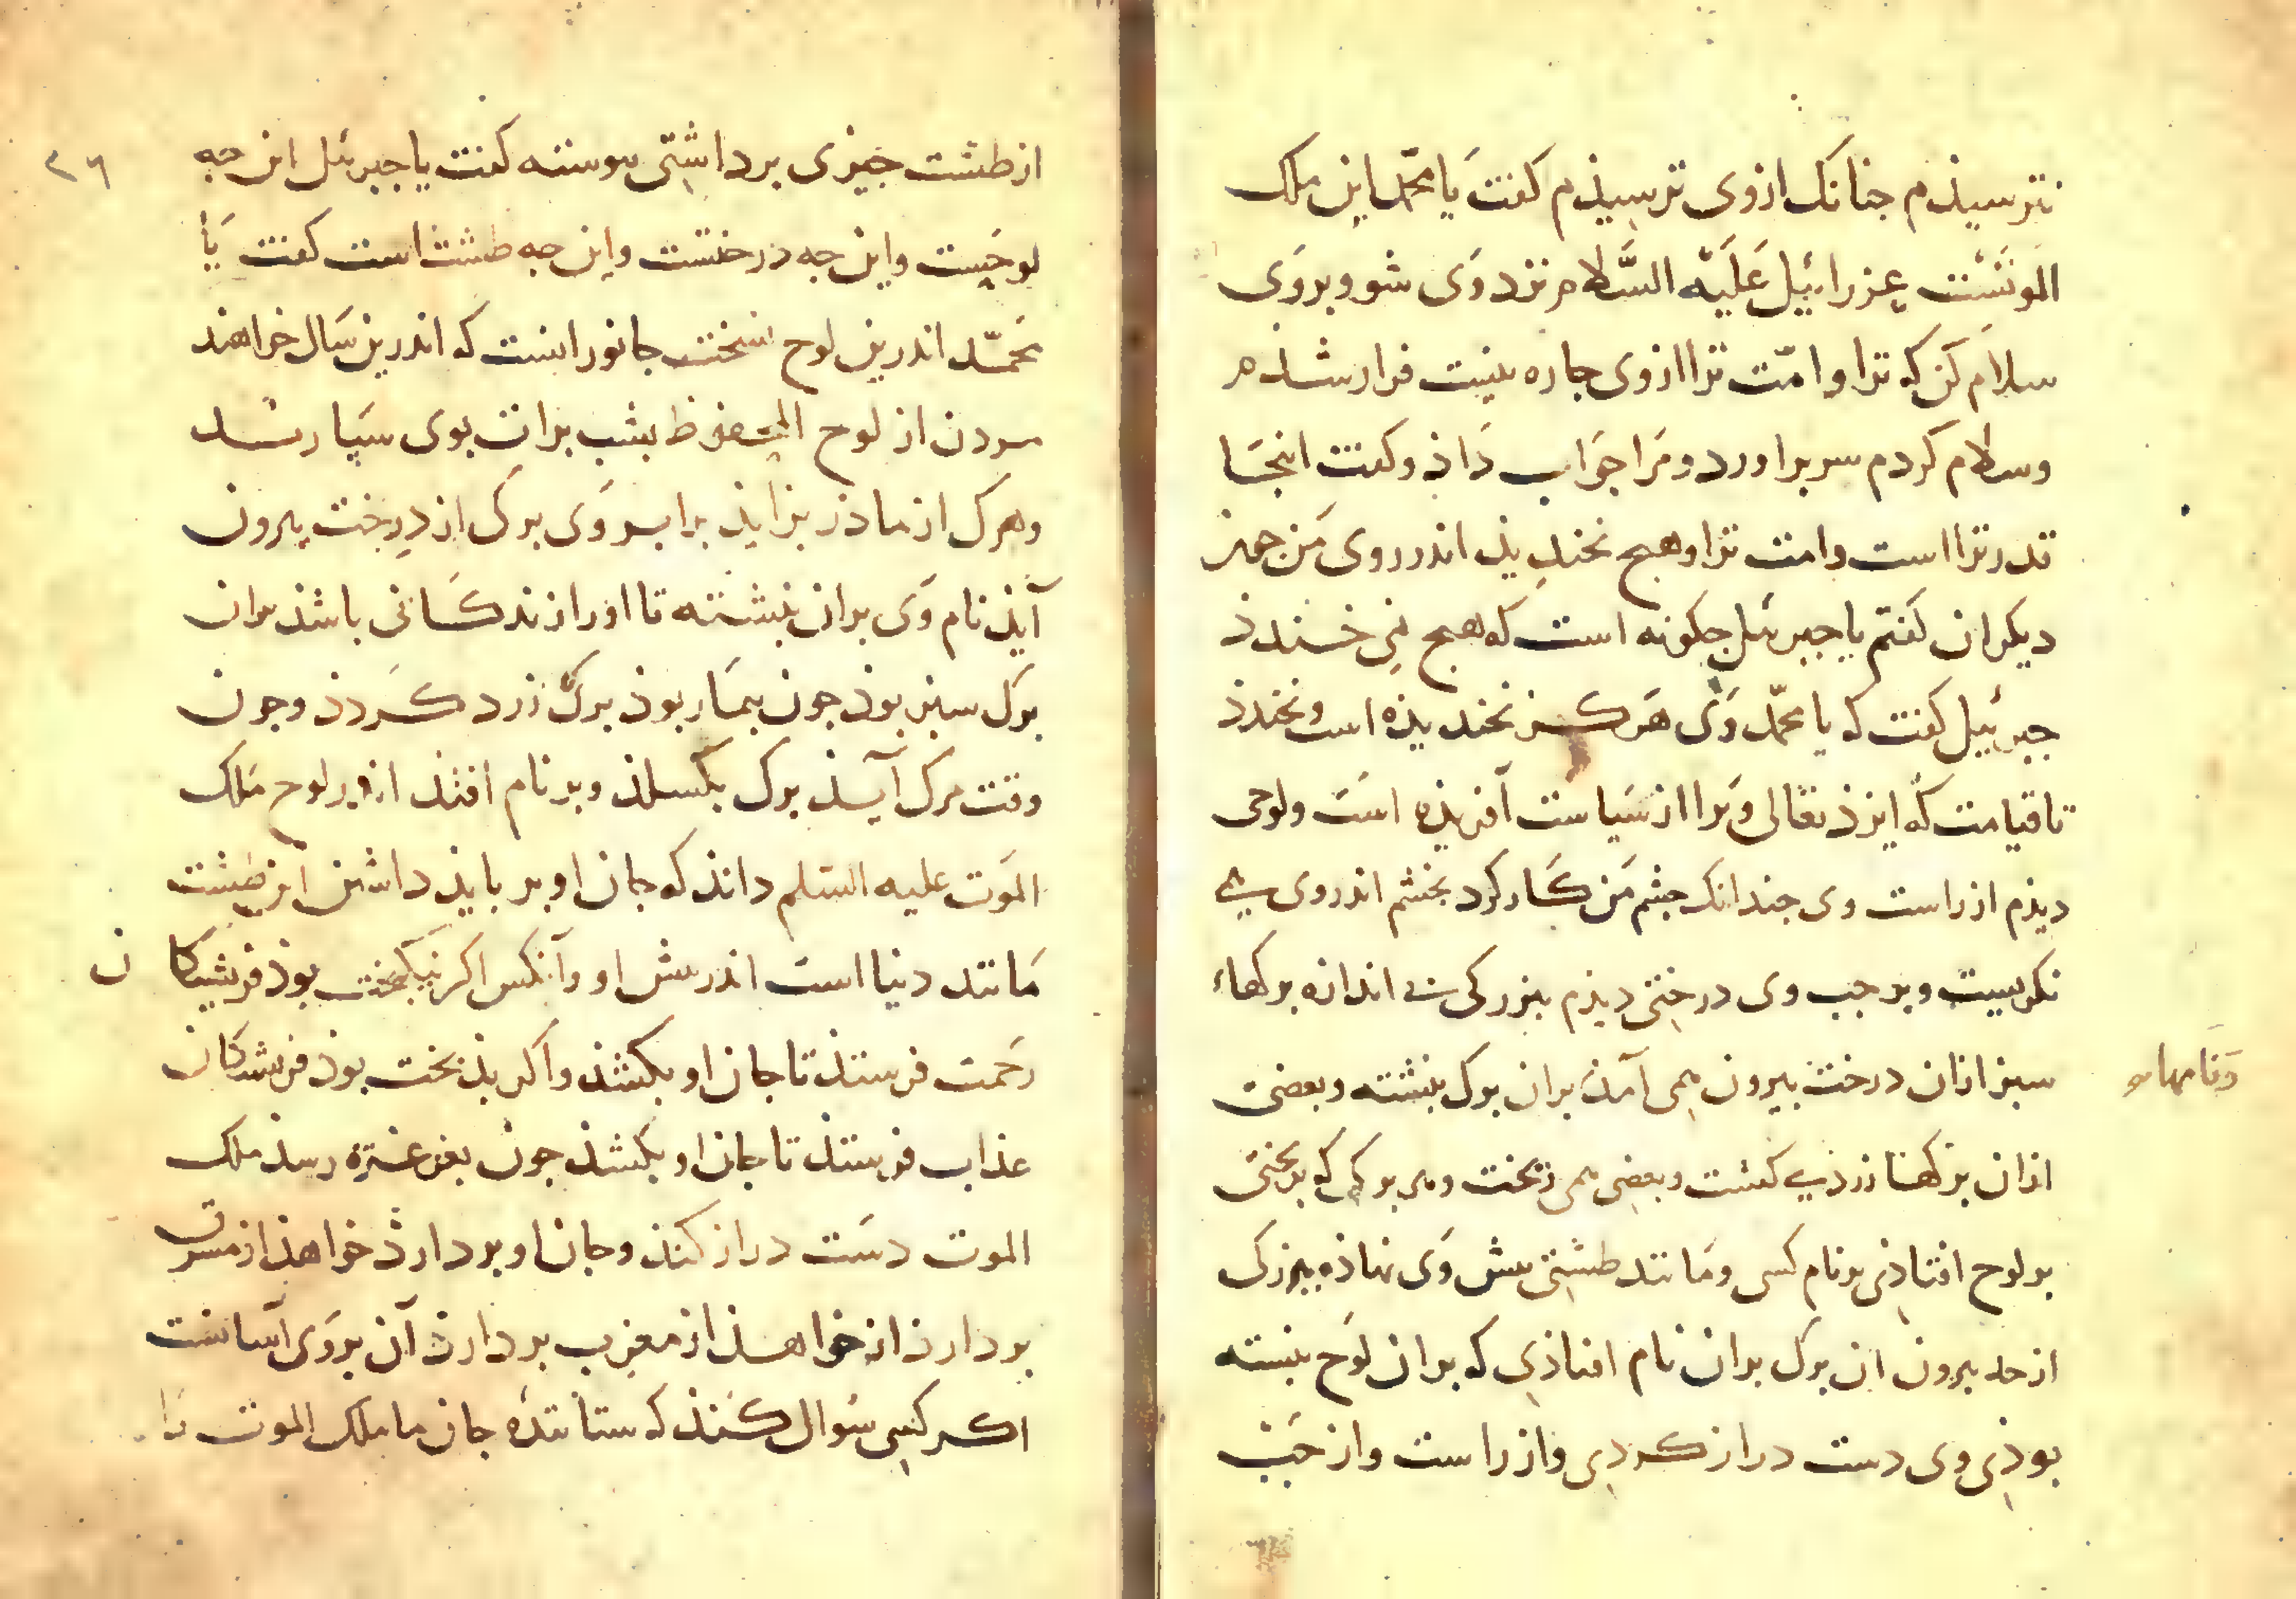 نترسیذم جنانک ازوی ترسیذم کفت یَا محمّد این ملک
الموتَسْت عِزرائیل عَلَیْه السَّلام نزد وَی شو و بروَی
سلاَم کن که ترا و امّت ترا ازوی جاره نیست فراز شذم
و سلام کردم سر براورد و مَرا جوَاب دَاذ و کفت اینجَا
قدر ترا است و امت ترا و هیج نخندِیذ اندر روی مَن جون
دیکران کفتم یا جبرئیل جکونه است که هیج نمِی خندذ
جبرئیل کفت که یا محمّد وَی هَرکز نخندیذه است و نخندذ
تا قیامت که ایزذ تعالی وَیرا از سَیاست آفریذه است و لوحی
دیذم از راست وی جندانک جشم مَن کَار کرد بخشم اندروی مے
نکریست و بر جب وی درختِی دیذم بزرکی بے اندازه برکهاء
سبز ازان درخت بیرون همِی آمذ بران برک نبشته و بعضی
وَنامها
ازان برکها زرد مے کشت و بعضِی همی ریخت و هر برکی که بریختی
بر لوح افتاذِی بر نام کسی و مَانند طشتِی بیش وَی نهاذه ببزرکی
از حد بیرون ان برک بران نام افتاذِی که بران لوَح نبسته
بوذِی وی دست دراز کردِی و از راست و از جَب
٢٦
از طشت جیزی برداشتِی بیوسته کفت یا جبرئیل این جه
لوحِیست و این جه درختست و این جه طشت است کفت یَا
محَمّد اندرین لوح نسخت جانورانست که اندرین سَال خواهند
مردن از لوح المحفوظ بشب برات بوی سبَارند
و هرک از ماذر بزایذ برابر وَی برک از درِخت بیرون
آیذ نام وَی بران نبشته تا اورا زندکَانی باشذ بران
برک سبز بوذ جون بیمَار بوذ برک زرد کَردذ و جون
وقت مرک آیذ برک بکسلذ و بر نام افتذ اندر لوح مَلک
الموَت علیه السّلم داند که جان او بر بایذ داشتن این طشت
مَانند دنیا است اندر بیش او و آنکس اکر نیکبخت بوذ فریشتکان
رحَمت فرستذ تا جان او بکشند و اکر بذبخت بوذ فریشتکان
عذاب فرِستذ تا جان او بکشند جون بغرغَره رسذ ملک
الموت دسَت دراز کنذ و جان او بردارذ خواهذ از مشرق
بردارذ از خواهذ از مغرب بردارذ آن بروَی آسانست
اکر کسِی سُوال کنَذ که ستانندهٔ جان ما ملک الموت